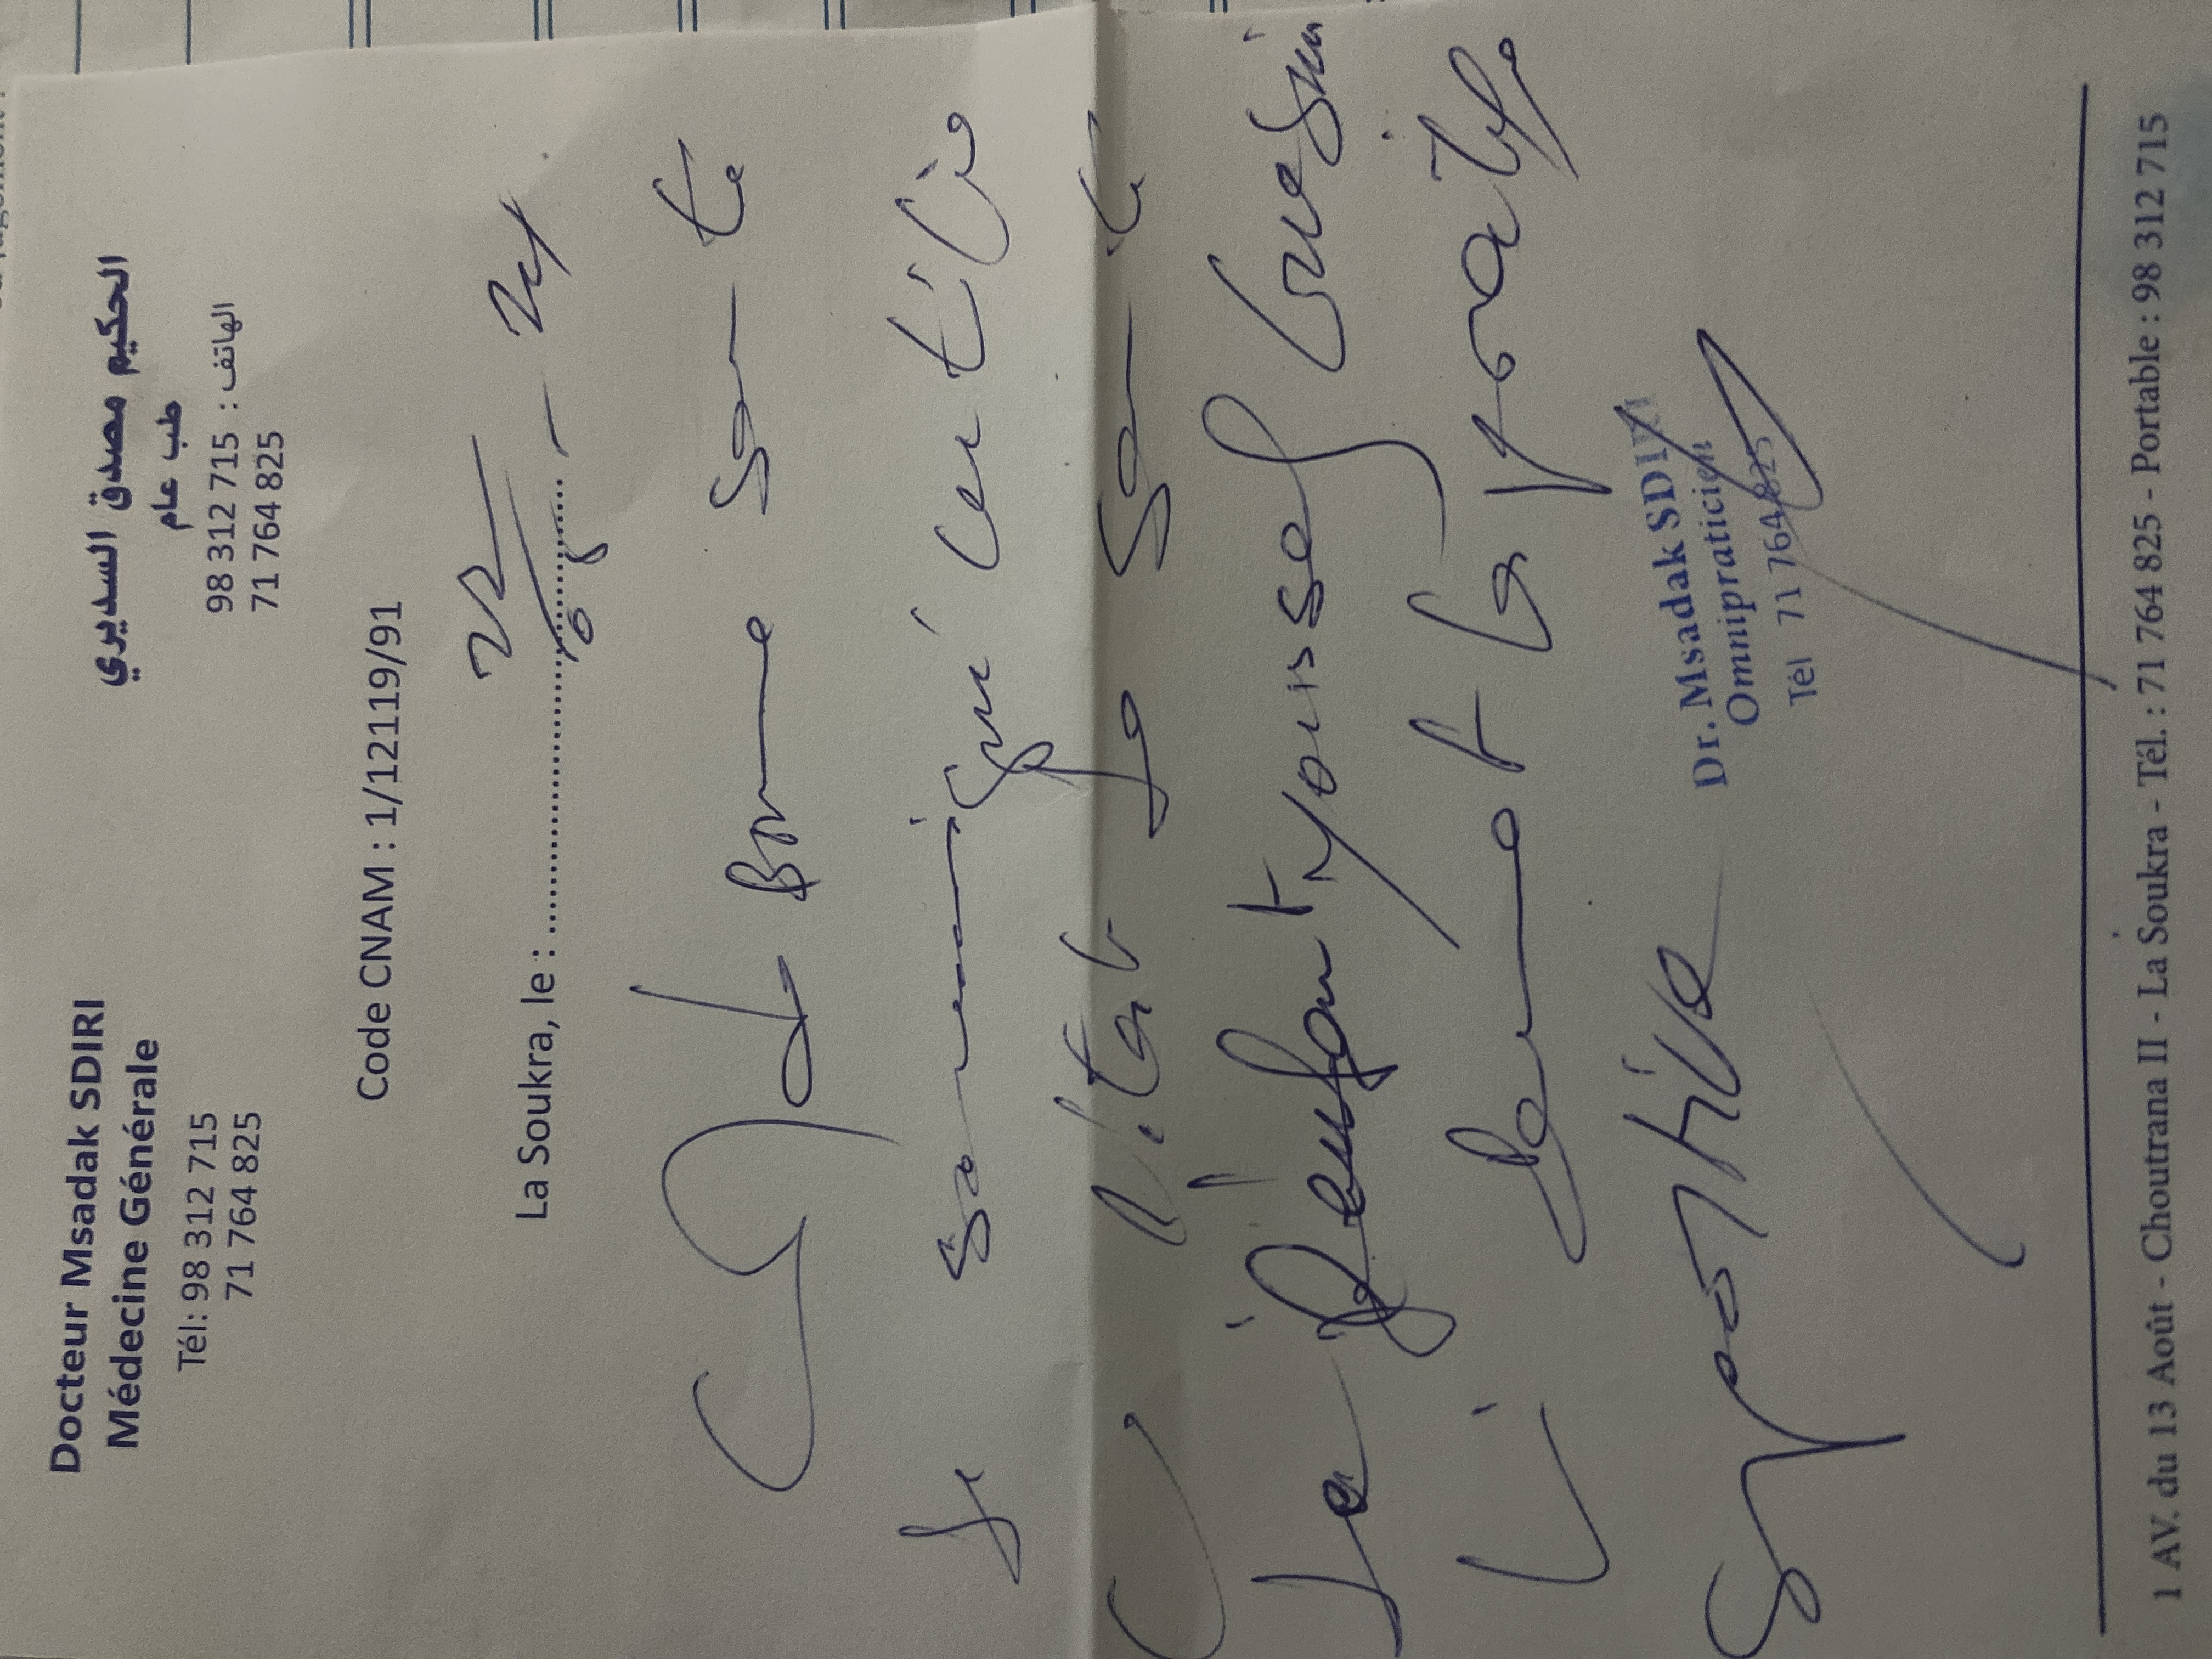 Docteur Msadak SDIRI
Médecine Générale
Tél: 98 312 715
71 764 825
الحكيم مصدق السديري
طب عام
الهاتف : 98 312 715
71 764 825
Code CNAM : 1/12119/91
La Soukra, le :
de Bonne Santé
Je soussigné certifie
l'état de santé
de l'enfant Youssef
permet la pratique
sportive
Dr. Msadak SDIRI
Omnipraticien
Tél 71 764 825
1 AV. du 13 Août - Choutrana II - La Soukra - Tél. : 71 764 825 - Portable : 98 312 715